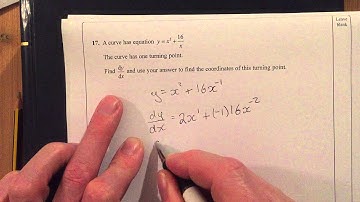 Leave
blank
17. A curve has equation y = x² + 16/x
The curve has one turning point.
Find dy/dx and use your answer to find the coordinates of this turning point.
y = x² + 16x⁻¹
dy/dx = 2x¹ + (-1)16x⁻²